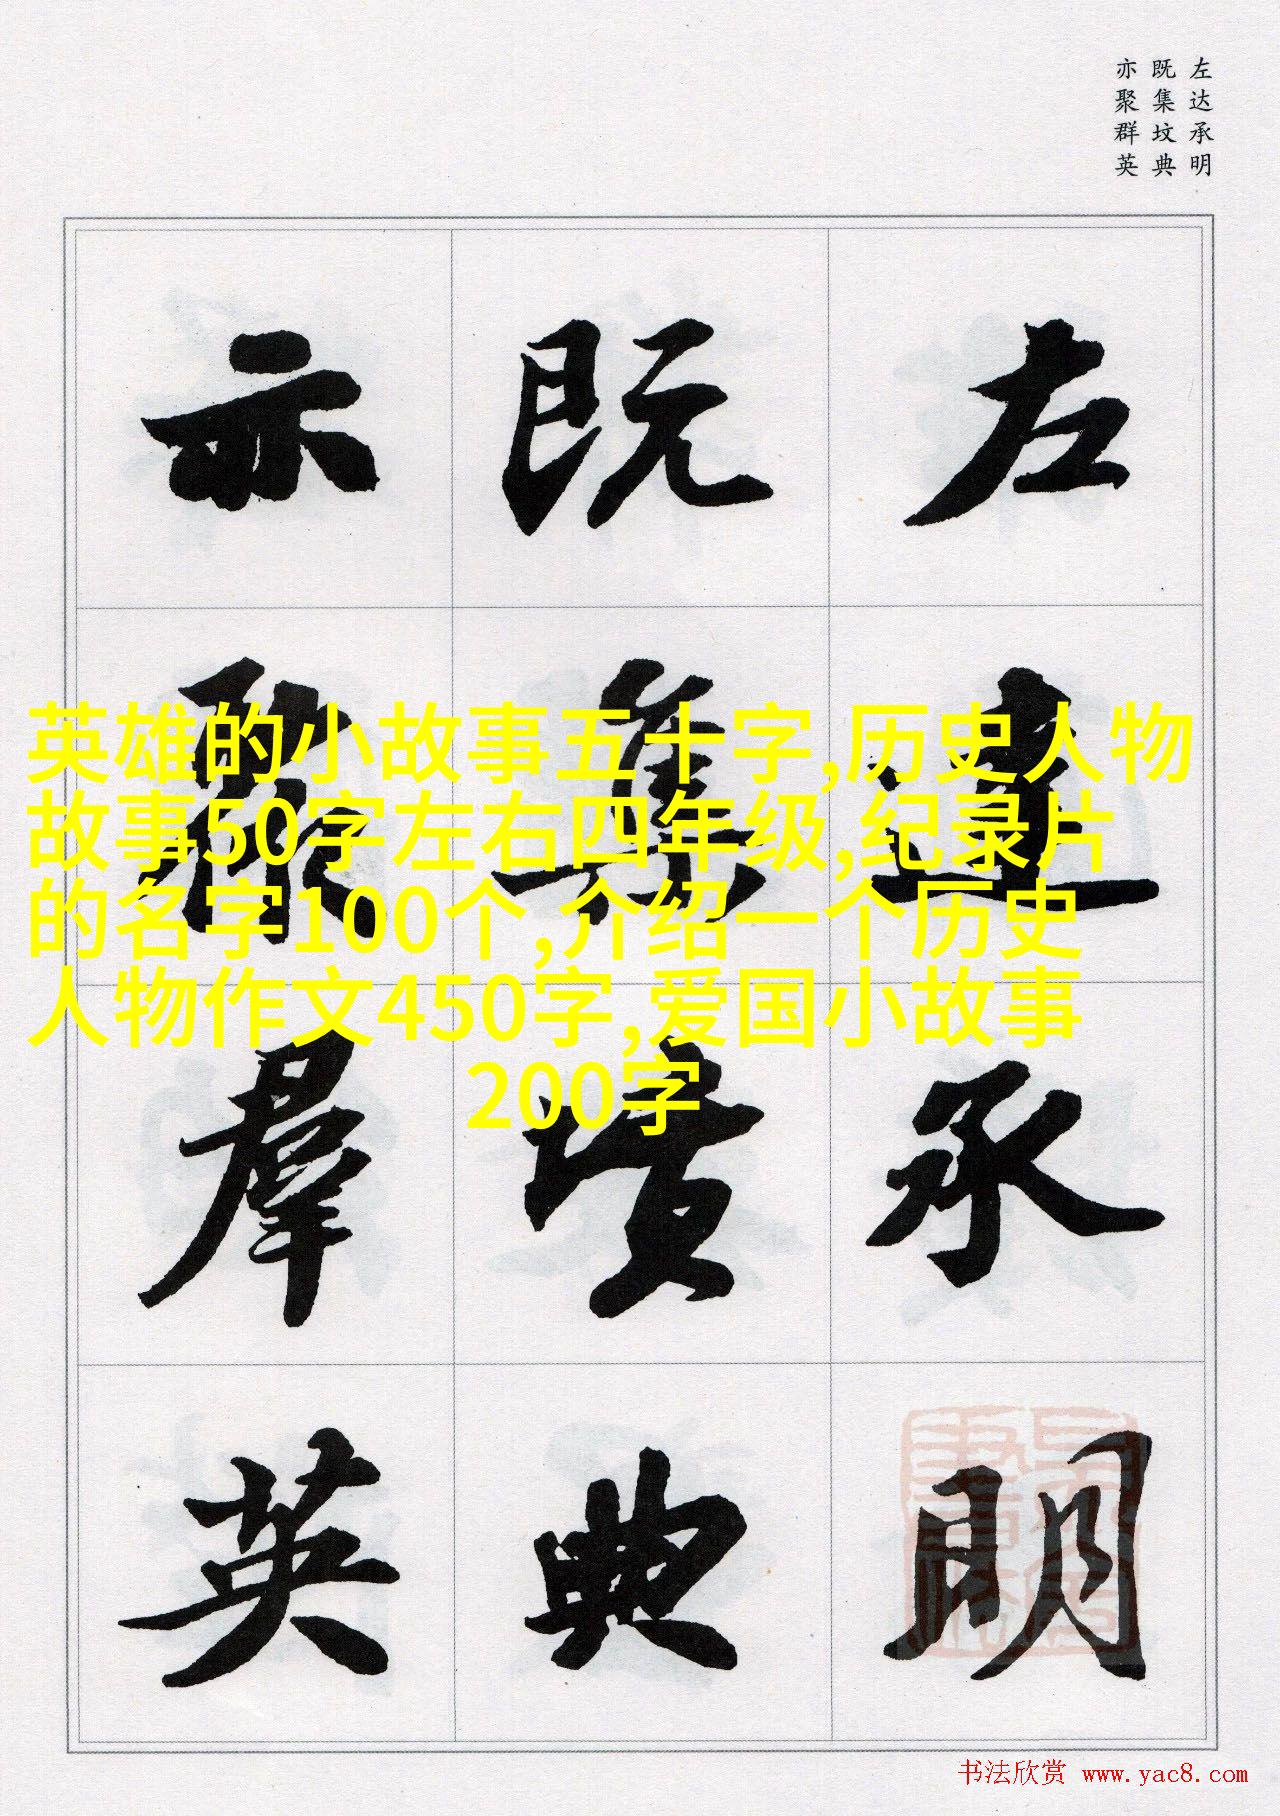 左达承明
既集坟典
亦聚群英
左達承明
既集墳典
亦聚羣英
英雄的小故事五十字,历史人物
故事50字左右四年级,纪录片
的名字100个,介绍一个历史
人物作文450字,爱国小故事
200字
书法欣赏 www.yac8.com